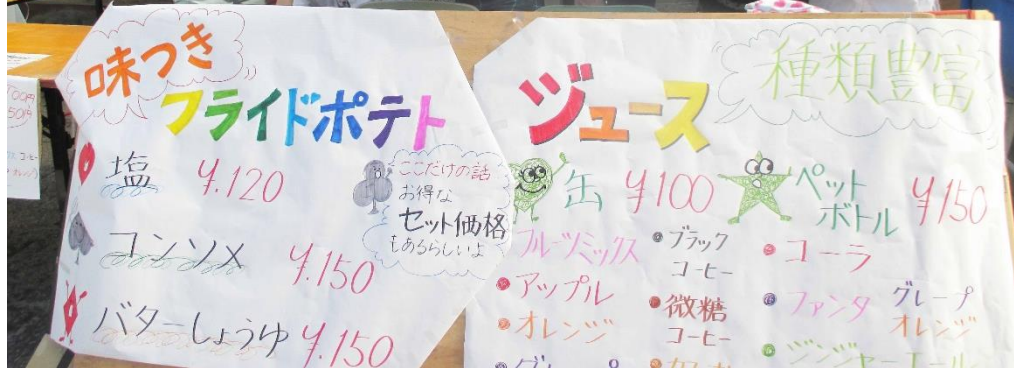 味つき
フライドポテト
塩 ¥.120
コンソメ ¥.150
バターしょうゆ ¥.150
ここだけの話
お得な
セット価格
もあるらしいよ
ジュース
種類豊富
缶 ¥100
フルーツミックス
アップル
オレンジ
グレープ
ブラック
コーヒー
微糖
コーヒー
ペット
ボトル ¥150
コーラ
ファンタ グレープ
オレンジ
ジンジャーエール